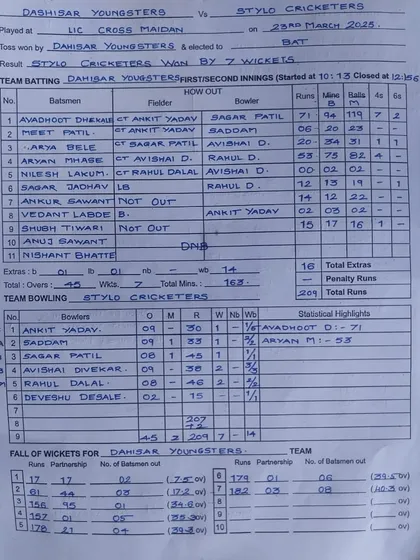 DASHISAR YOUNGSTERS Vs STYLO CRICKETERS
Played at LIC CROSS MAIDAN on 23RD MARCH 2025.
Toss won by DAHISAR YOUNGSTERS & elected to BAT
Result STYLO CRICKETERS WON BY 7 WICKETS
TEAM BATTING DAHISAR YOUGSTERS FIRST/SECOND INNINGS (Started at 10:13 Closed at 12:56
No. Batsmen HOW OUT Fielder Bowler Runs Mins B Balls M 4s 6s
1 AVADHOOT DHEKALE CT ANKIT YADAV SAGAR PATIL 71 94 119 7 2
2 MEET PATIL. CT ANKIT YADAV SADDAM 06 20 23 - -
3 ARYA BELE CT SAGAR PATIL AVISHAI D. 20 34 31 1 1
4 ARYAN MHASE CT AVISHAI D. RAHUL D. 53 75 82 4 -
5 NILESH LAKUM. CT RAHUL DALAL AVISHAI D. 00 02 02 - -
6 SAGAR JADHAV LB RAHUL D. 12 13 19 - 1
7 ANKUR SAWANT NOT OUT 14 12 22 - -
8 VEDANT LABDE B. ANKIT YADAV 02 03 02 - -
9 SHUBH TIWARI NOT OUT 15 17 16 1 -
10 ANUJ SAWANT DNB
11 NISHANT BHATTE
Extras : b 01 lb 01 nb - wb 14 16 Total Extras
- Penalty Runs
Total : Overs : 45 Wkts. 7 Total Mins.: 163. 209 Total Runs
TEAM BOWLING STYLO CRICKETERS
No. Bowlers O M R W Nb Wb Statistical Highlights
1 ANKIT YADAV. 09 - 30 1 - AVADHOOT D:- 71
2 SADDAM 09 1 33 1 - 2/2 ARYAN M:- 53
3 SAGAR PATIL 08 1 45 1 1/1
4 AVISHAI DIVEKAR. 09 - 38 2 - 3/3
5 RAHUL DALAL. 08 - 46 2 - 2/2
6 DEVESHU DESALE. 02 - 15 - - 1/1
7
8 207 +2
9 45 2 209 7 - 14
FALL OF WICKETS FOR DAHISAR YOUNGSTERS. TEAM
Runs Partnership No. of Batsmen out Runs Partnership No. of Batsmen out
1 17 17 02 (7.5 ov) 6 179 01 06 (39.5 ov)
2 61 44 03 (17.2 ov) 7 182 03 08 (40.3 ov)
3 156 95 01 (34.6 ov) 8 (ov)
4 157 01 05 (35.3 ov) 9 (ov)
5 178 21 04 (39.3 ov) 10 (ov)